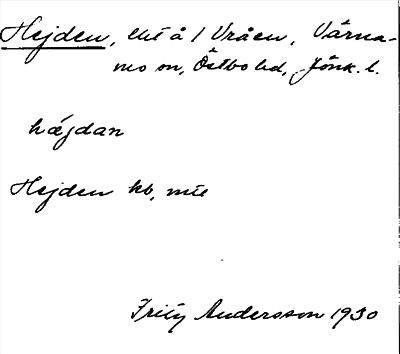 Hejden, lht å 1 Vråen, Värna-
mo sn, Östbo hd, Jönk. l.
hæjdan
Hejden kb, mtl
Fritz Andersson 1930